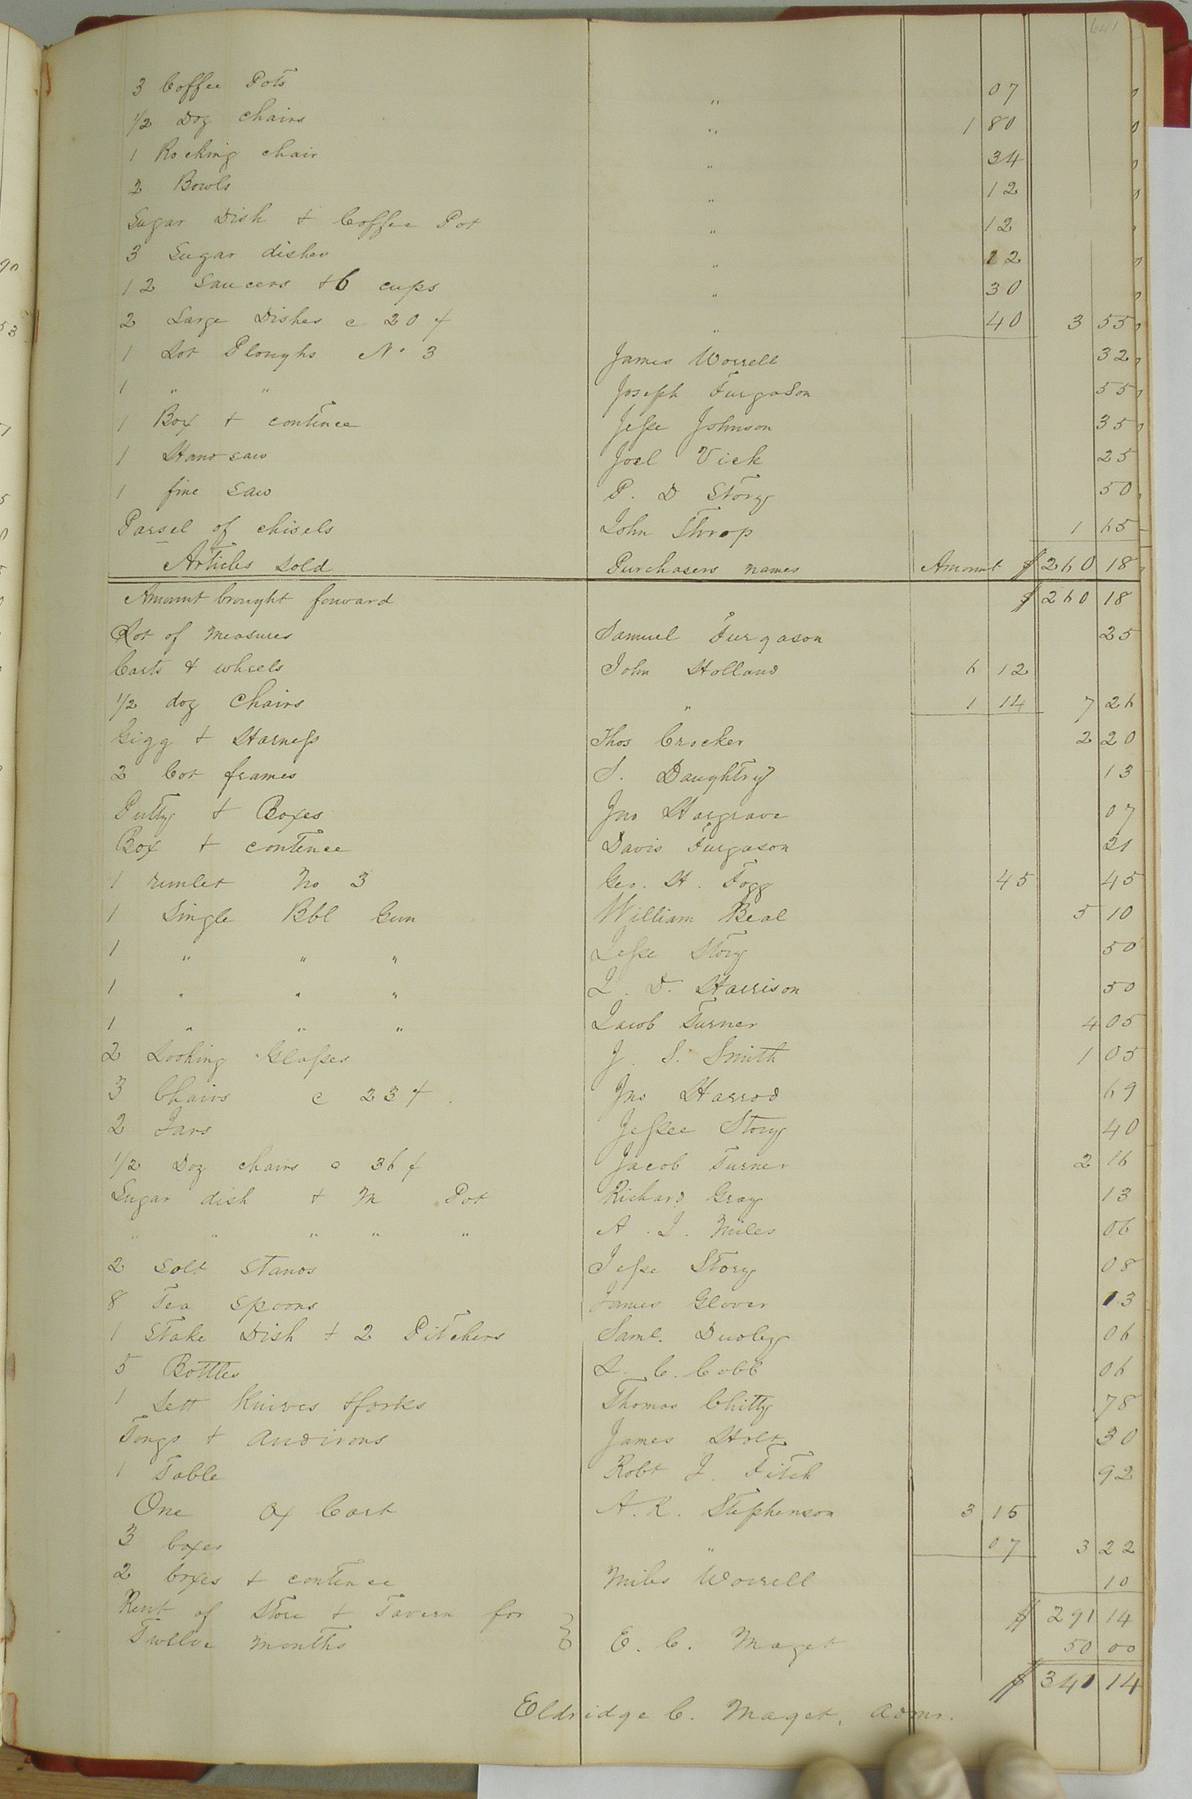 641
3 Coffee Pots " 07
1/2 Doz chairs " 1 80
1 Rocking chair " 34
2 Bowls " 12
Sugar Dish + Coffee Pot " 12
3 Sugar dishes " 12
12 Saucers + 6 cups " 30
2 Large Dishes c 20 ¢ " 40 3 55
1 Lot Ploughs No 3 James Worrell 32
1 " " Joseph Furgason 55
1 Box + contence Jesse Johnson 35
1 Hand saw Joel Vick 25
1 fine saw P. D Story 50
Parsel of chisels John Throp 1 65
Articles sold Purchasers names Amount $ 260 18
Amount brought forward $ 260 18
Lot of measures Samuel Furgason 25
Carts & wheels John Holland 6 12
1/2 doz chairs " 1 14 7 26
Gigg + Harness Thos Crocker 2 20
2 Cot frames S. Daughtry 13
Putty + Boxes Jno Hargrave 07
Box + contence Davis Furgason 21
1 runlet No 3 Geo. H. Fogg 45 45
1 Single Bbl Gun William Beal 5 10
1 " " " Jesse Story 50
1 " " " J. D. Harrison 50
1 " " " Jacob Turner 4 05
2 Looking Glasses J. S. Smith 1 05
3 Chairs c 23 ¢ Jno Harrod 69
2 Jars Jessee Story 40
1/2 Doz chairs c 36 ¢ Jacob Turner 2 16
Sugar dish + M Pot Richard Gray 13
" " " " " A. J. Miles 06
2 Salt stands Jesse Story 08
8 Tea spoons James Glover 13
1 Stake Dish + 2 Pitchers Saml. Dudley 06
5 Bottles J. C. Cobb 06
1 Sett Knives + forks Thomas Chitty 78
Tongs + andirons James Holt 30
1 Table Robt J. Fitch 92
One Ox Cart A. R. Stephenson 3 15
3 boxes " 07 3 22
2 boxes + contence Miles Worrell 10
Rent of Store + Tavern for $ 291 14
Twelve months E. C. Maget 50 00
$ 341 14
Eldridge C. Maget, admr.